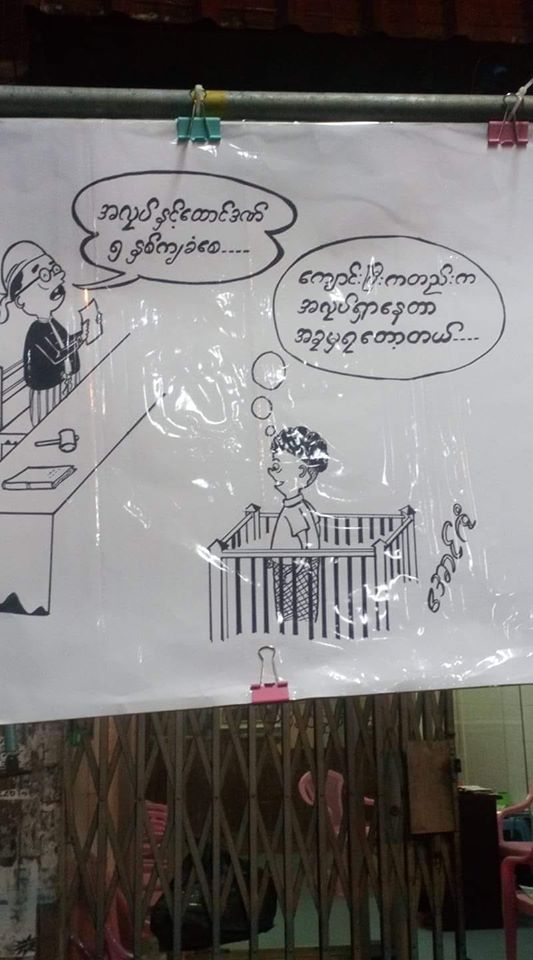 အလုပ်နှင့်ထောင်ဒဏ်
၅ နှစ်ကျခံစေ....
ကျောင်းပြီးကတည်းက
အလုပ်ရှာနေတာ
အခုမှရတော့တယ်....